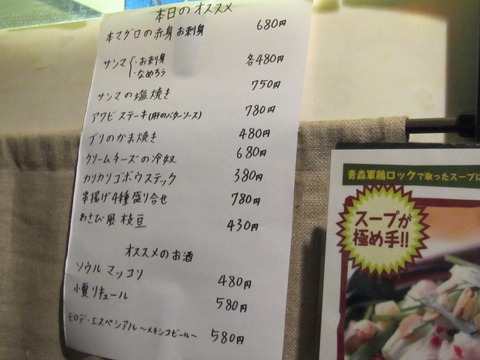 本日のオススメ
本マグロの赤身お刺身 680円
サンマ・お刺身 各480円
・なめろう
サンマの塩焼き 750円
アワビステーキ(肝のバターソース) 780円
ブリのかま焼き 480円
クリームチーズの冷奴 680円
カリカリゴボウスティック 380円
串揚げ4種盛り合せ 780円
わさび風枝豆 430円
オススメのお酒
ソウルマッコリ 480円
小夏リキュール 580円
モロデ・エスペシアル〜メキシコビール〜 580円
青森軍鶏ロックで取ったスープに
スープが
極め手!!